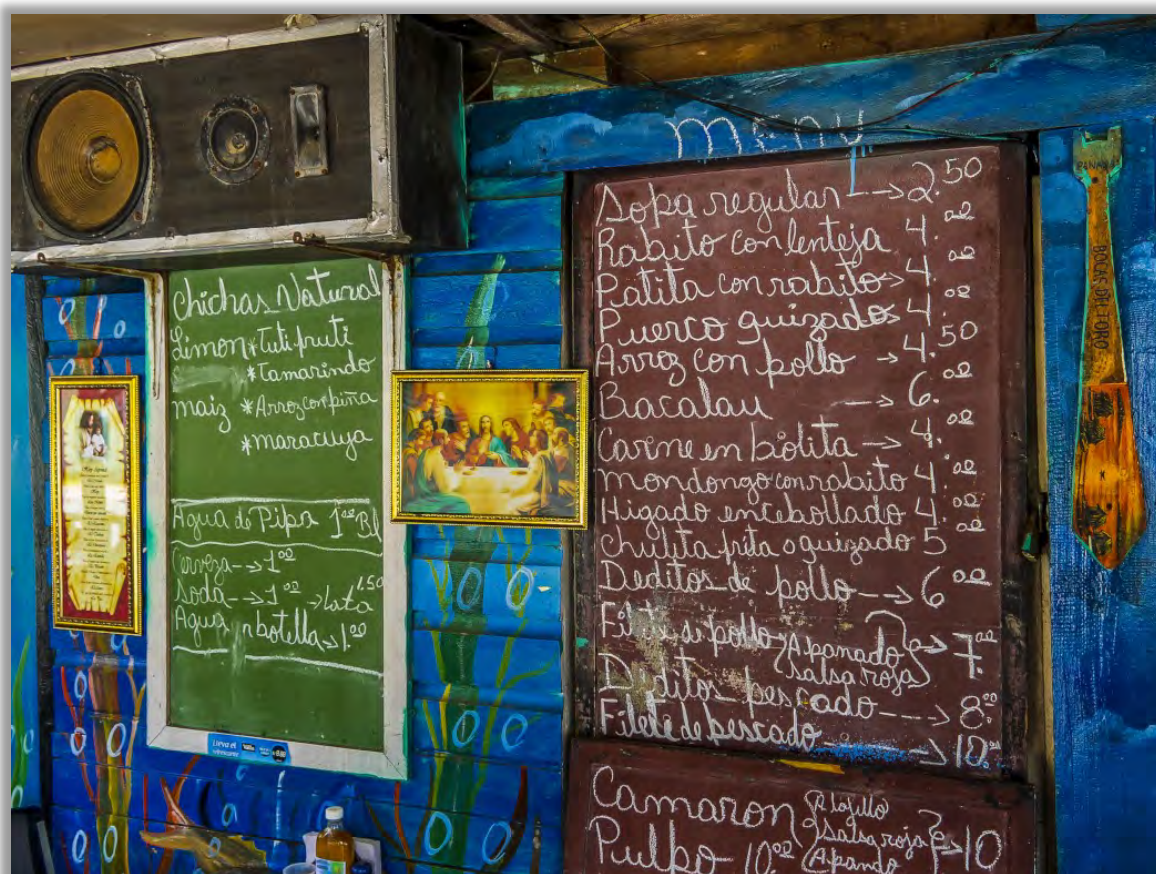 menu
Chichas Natural
Limon * Tuti fruti
* Tamarindo
maiz * Arroz con piña
* maracuya
Agua de Pipa 1.00 Bl
Cerveza → 1.00
Soda → 1.00 → Lata 1.50
Agua n botella → 1.00
Lleva el
Sopa regular → 2.50
Rabito con lenteja 4.00
Patita con rabito → 4.00
Puerco guizado 4.00
Arroz con pollo → 4.50
Bacalau → 6.00
Carne en biolita → 4.00
mondongo con rabito 4.00
Higado encebollado 4.00
Chulita frita o guizado 5.00
Deditos de pollo → 6.00
Filete de pollo (Apanado → 7.00
Salsa roja)
Deditos pescado → 8.00
Filete de pescado → 10.00
Camaron Al ajillo
Salsa roja → 10
Pulpo - 10.00 (Apando
PANAMA
BOCAS DEL TORO